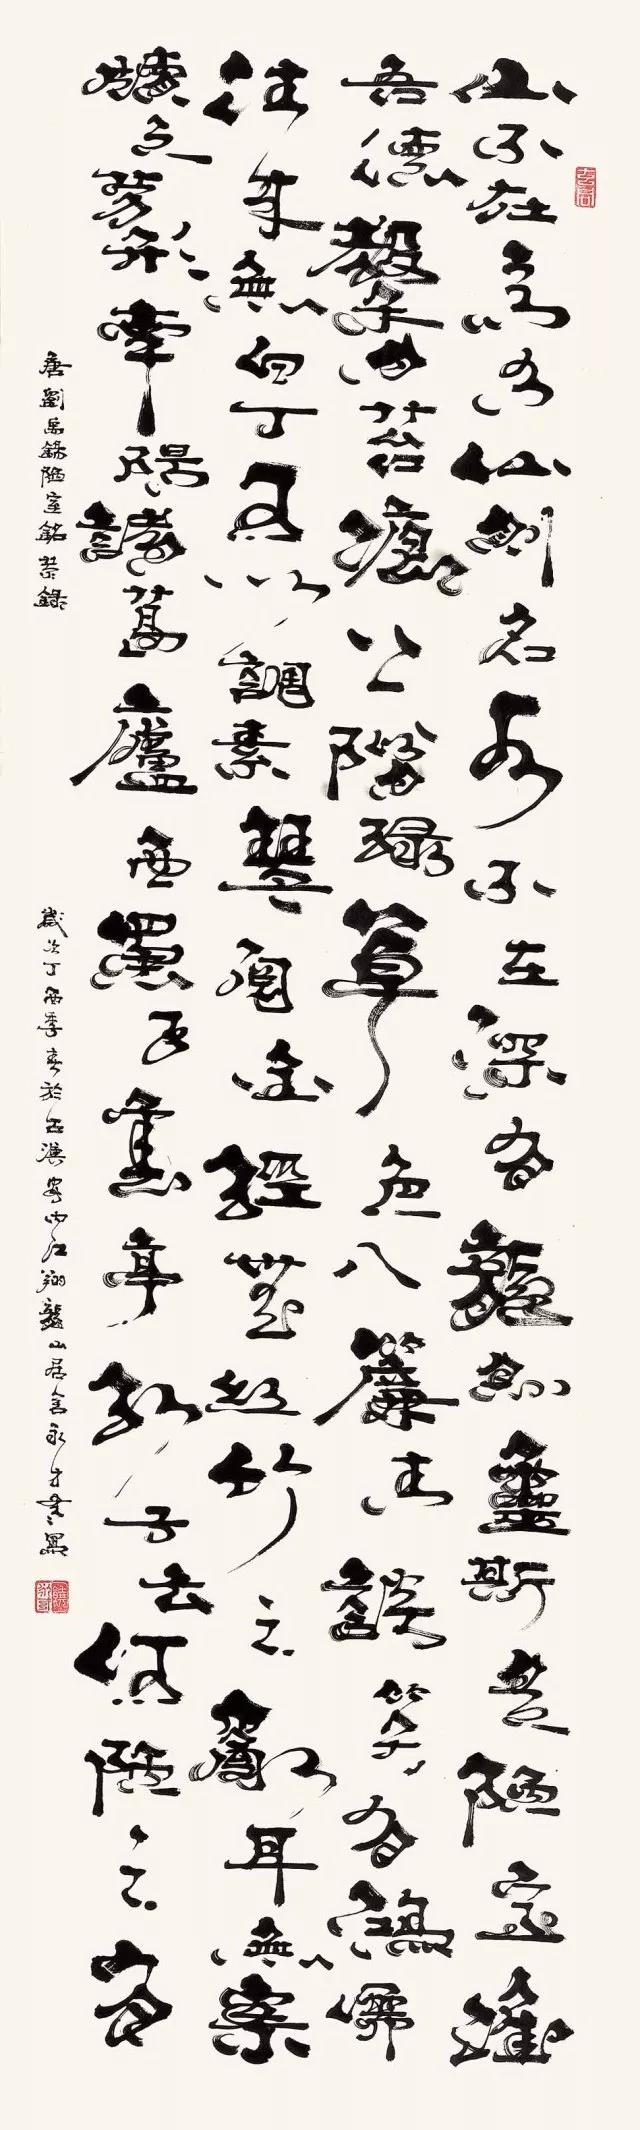 山不在高有仙則名水不在深有龍則靈斯是陋室惟
吾德馨苔痕上階綠草色入簾青談笑有鴻儒
往來無白丁可以調素琴閱金經無絲竹之亂耳無案
牘之勞形南陽諸葛廬西蜀子雲亭孔子云何陋之有
唐劉禹錫陋室銘恭錄
歲次丁酉季春於古漢安內江翔龍山居舍永才書